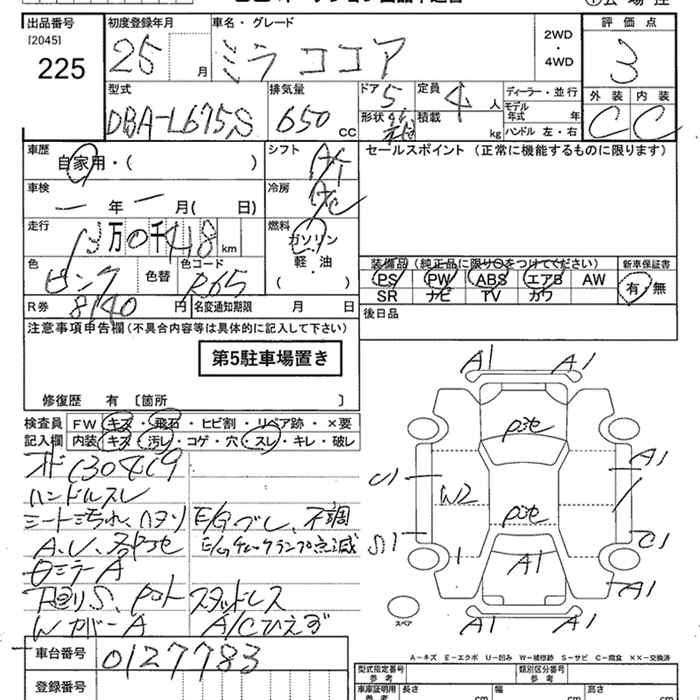 出品番号
[2045]
225
初度登録年月
25 月
車名・グレード
ミラココア
2WD
・
4WD
評価点
3
外装 内装
C C
型式
DBA-L675S
排気量
650 CC
ドア
5
形状
定員
4 人
積載 kg
ディーラー・並行
モデル
年式 年
ハンドル 左・右
車歴
自家用・( )
シフト
AT
セールスポイント (正常に機能するものに限ります)
車検
ー年ー月( 日)
冷房
AC
走行
13万0千418km
燃料
ガソリン
軽・油
( )
色
ピンク
色替
色コード
R65
装備品 (純正品に限り○をつけてください)
PS PW ABS エアB AW
SR ナビ TV カワ
新車保証書
有・無
R券
8140 円
名変通知期限 月 日
後日品
注意事項申告欄 (不具合内容等は具体的に記入して下さい)
第5駐車場置き
修復歴 有 〔箇所 〕
検査員
記入欄
FW キズ・飛石・ヒビ割・リペア跡・×要
内装 キズ・汚レ・コゲ・穴・スレ・キレ・破レ
130419
ハンドルスレ
シート汚れ、ハタリ
E/Gブレ、不調
E/Gチェックランプ点滅
A.U.
下回りS、
スタッドレス
WカバーA
A/Cひえず
A1 A1
凹
A1
U1
W2
C1
S1
A1
A1
A1 A1
スペア
A-キズ E-エクボ U-凹み W-補修跡 S-サビ C-腐食 ××-交換済
車台番号
0127783
登録番号
型式指定番号
参考
類別区分番号
参考
車庫証明用
参考
長さ cm
幅 cm
高さ cm